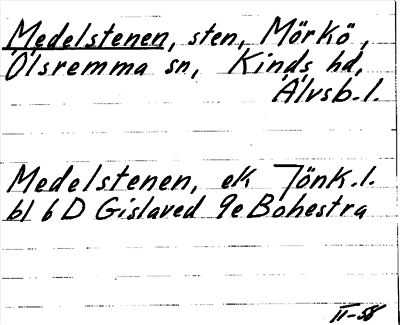 Medelstenen, sten, Mörkö,
Ölsremma sn, Kinds hd,
Älvsb. l.
Medelstenen, ek Jönk. l.
bl 6 D Gislaved 9e Bohestra
II-58